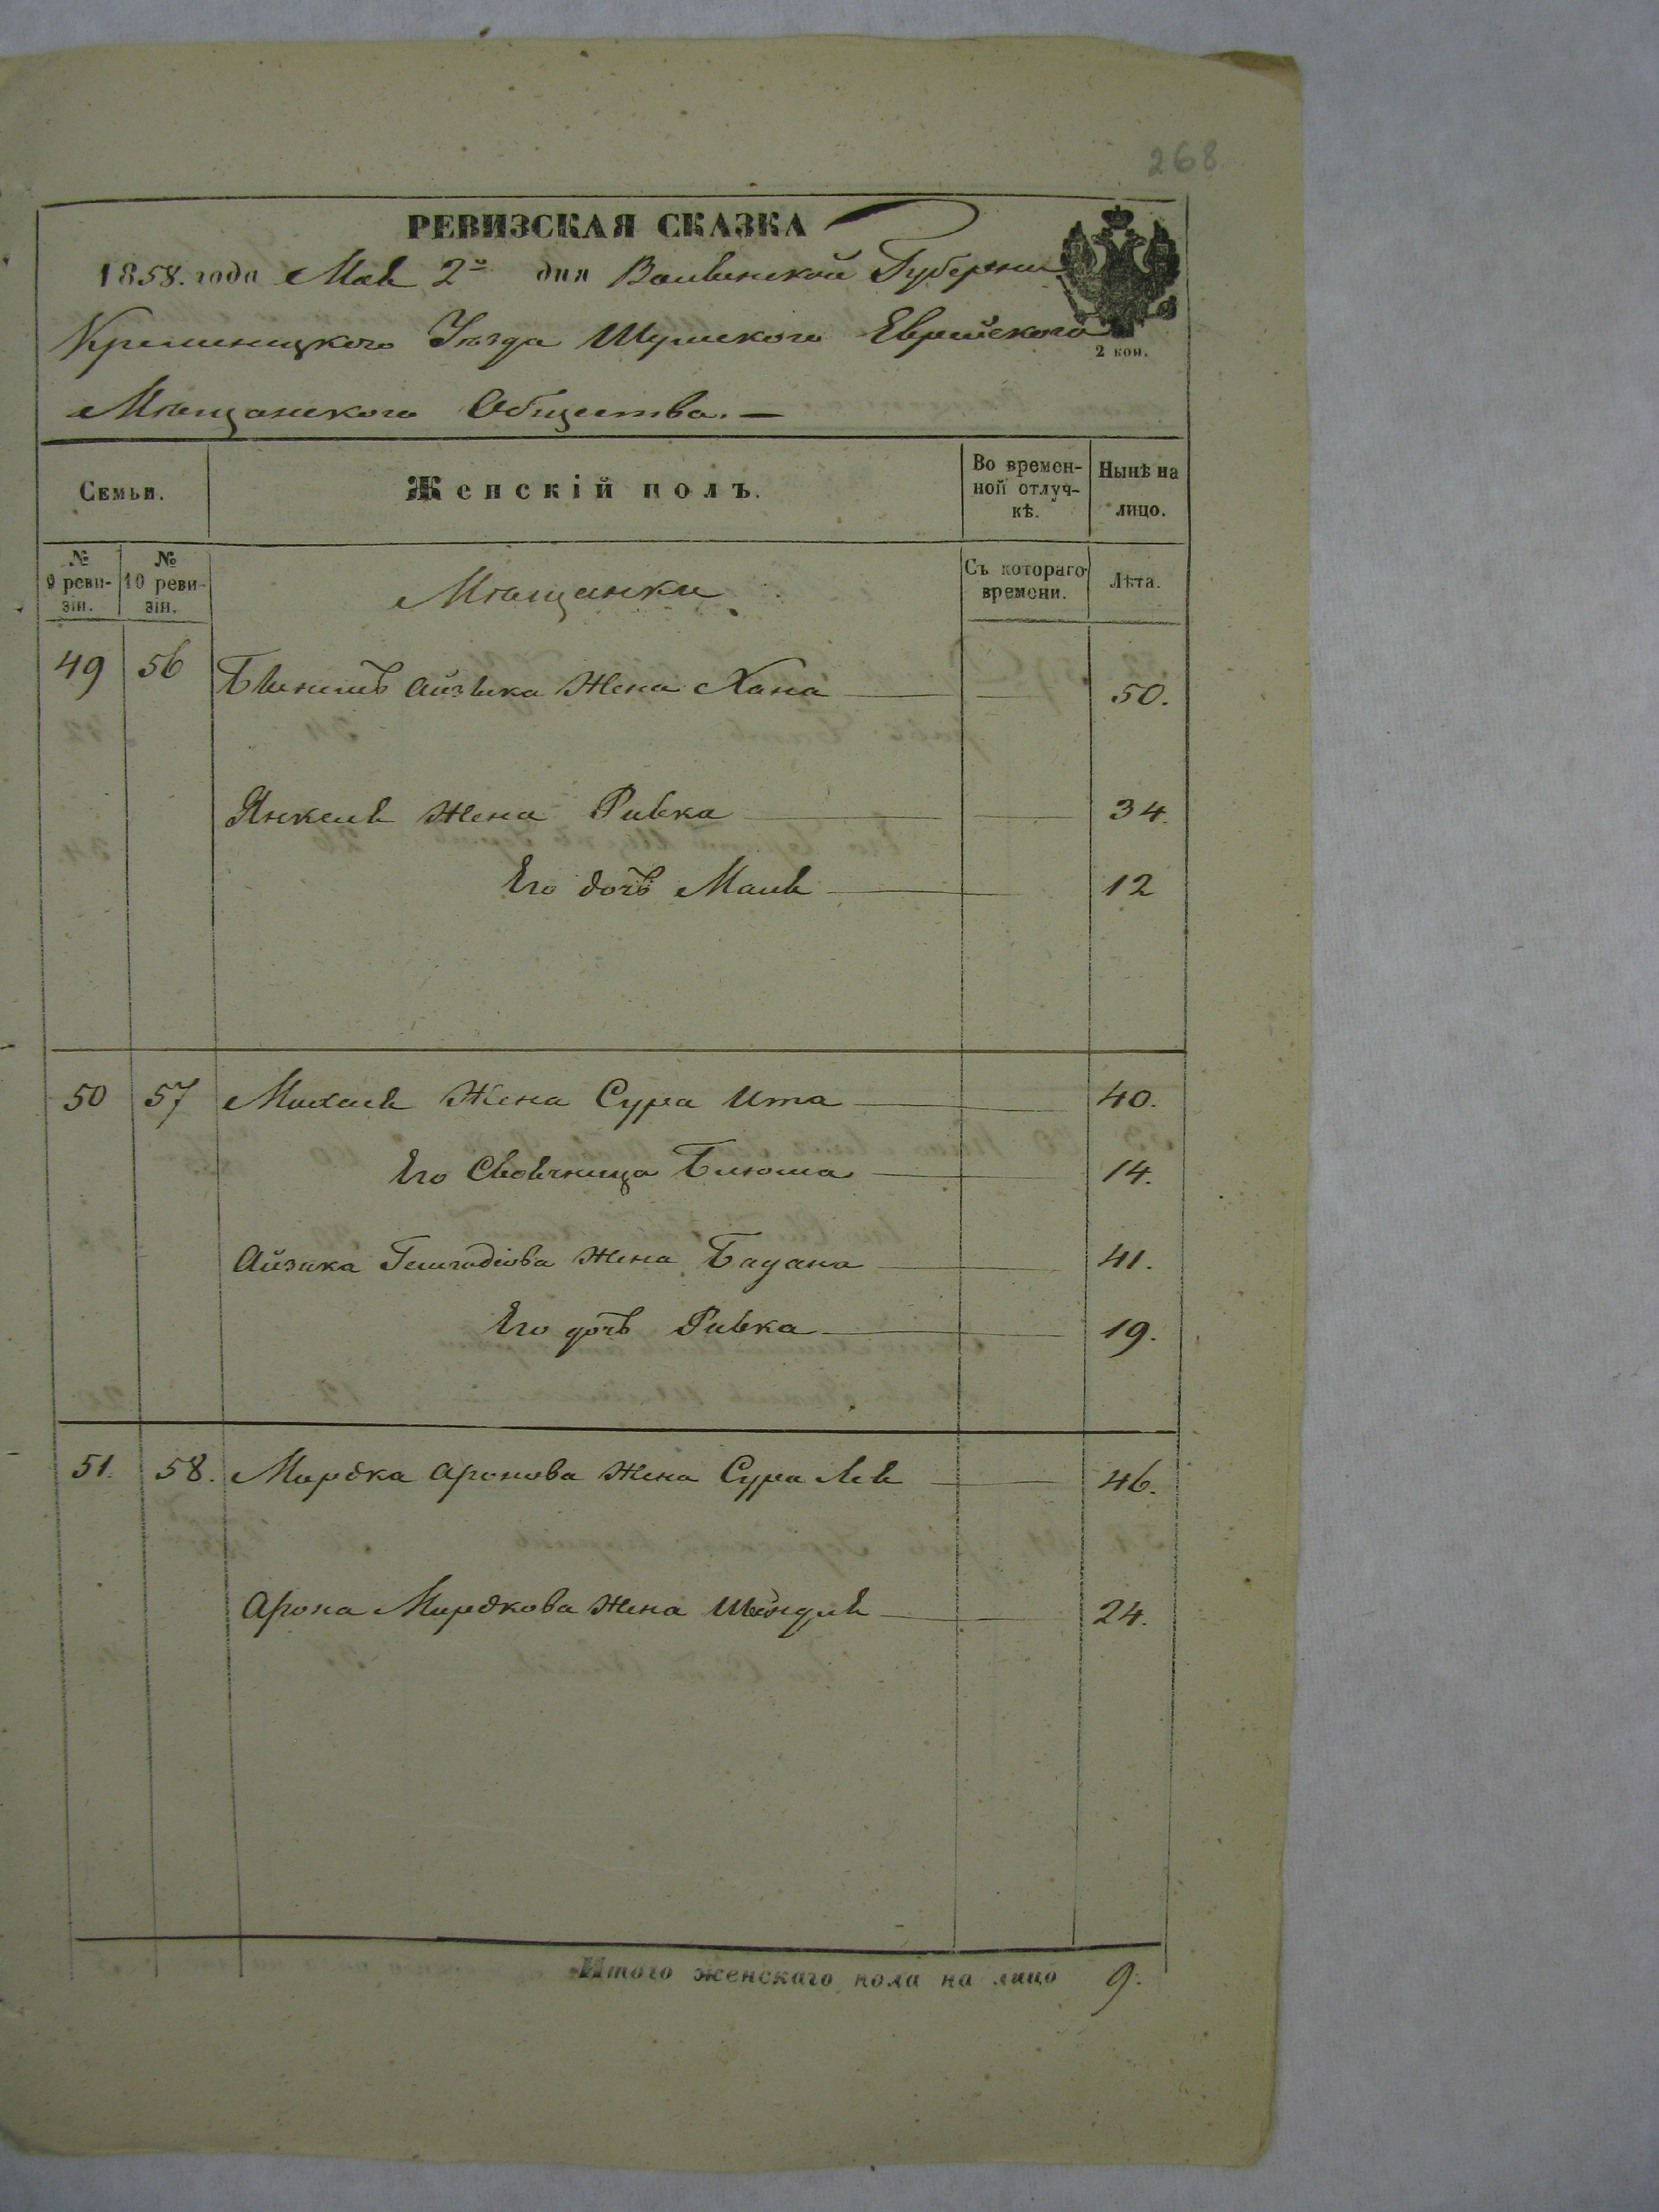 268
РЕВИЗСКАЯ СКАЗКА
1858. года Мая 2го дня Волынской Губернии
Кременецкого Уѣзда Шумского Еврейского
2 коп.
Мѣщанского Общества. —
Семьи. Женскій полъ. Во времен-ной отлуч-кѣ. Нынѣ на лицо.
№ 9 реви-зіи. № 10 реви-зіи. Мѣщанки Съ котораго времени. Лѣта.
49 56 Айзика Жена Хана 50.
Янкеля Жена Ривка 34.
Его дочь Маля 12
50 57 Михаля Жена Сура Ита 40.
Его Своячница 14.
Айзика Жена 41.
Его дочь Ривка 19.
51. 58. Мордка Аронова Жена Сура Лея 46.
Арона Мордкова Жена Шейндля 24.
Итого женскаго пола на лицо 9.